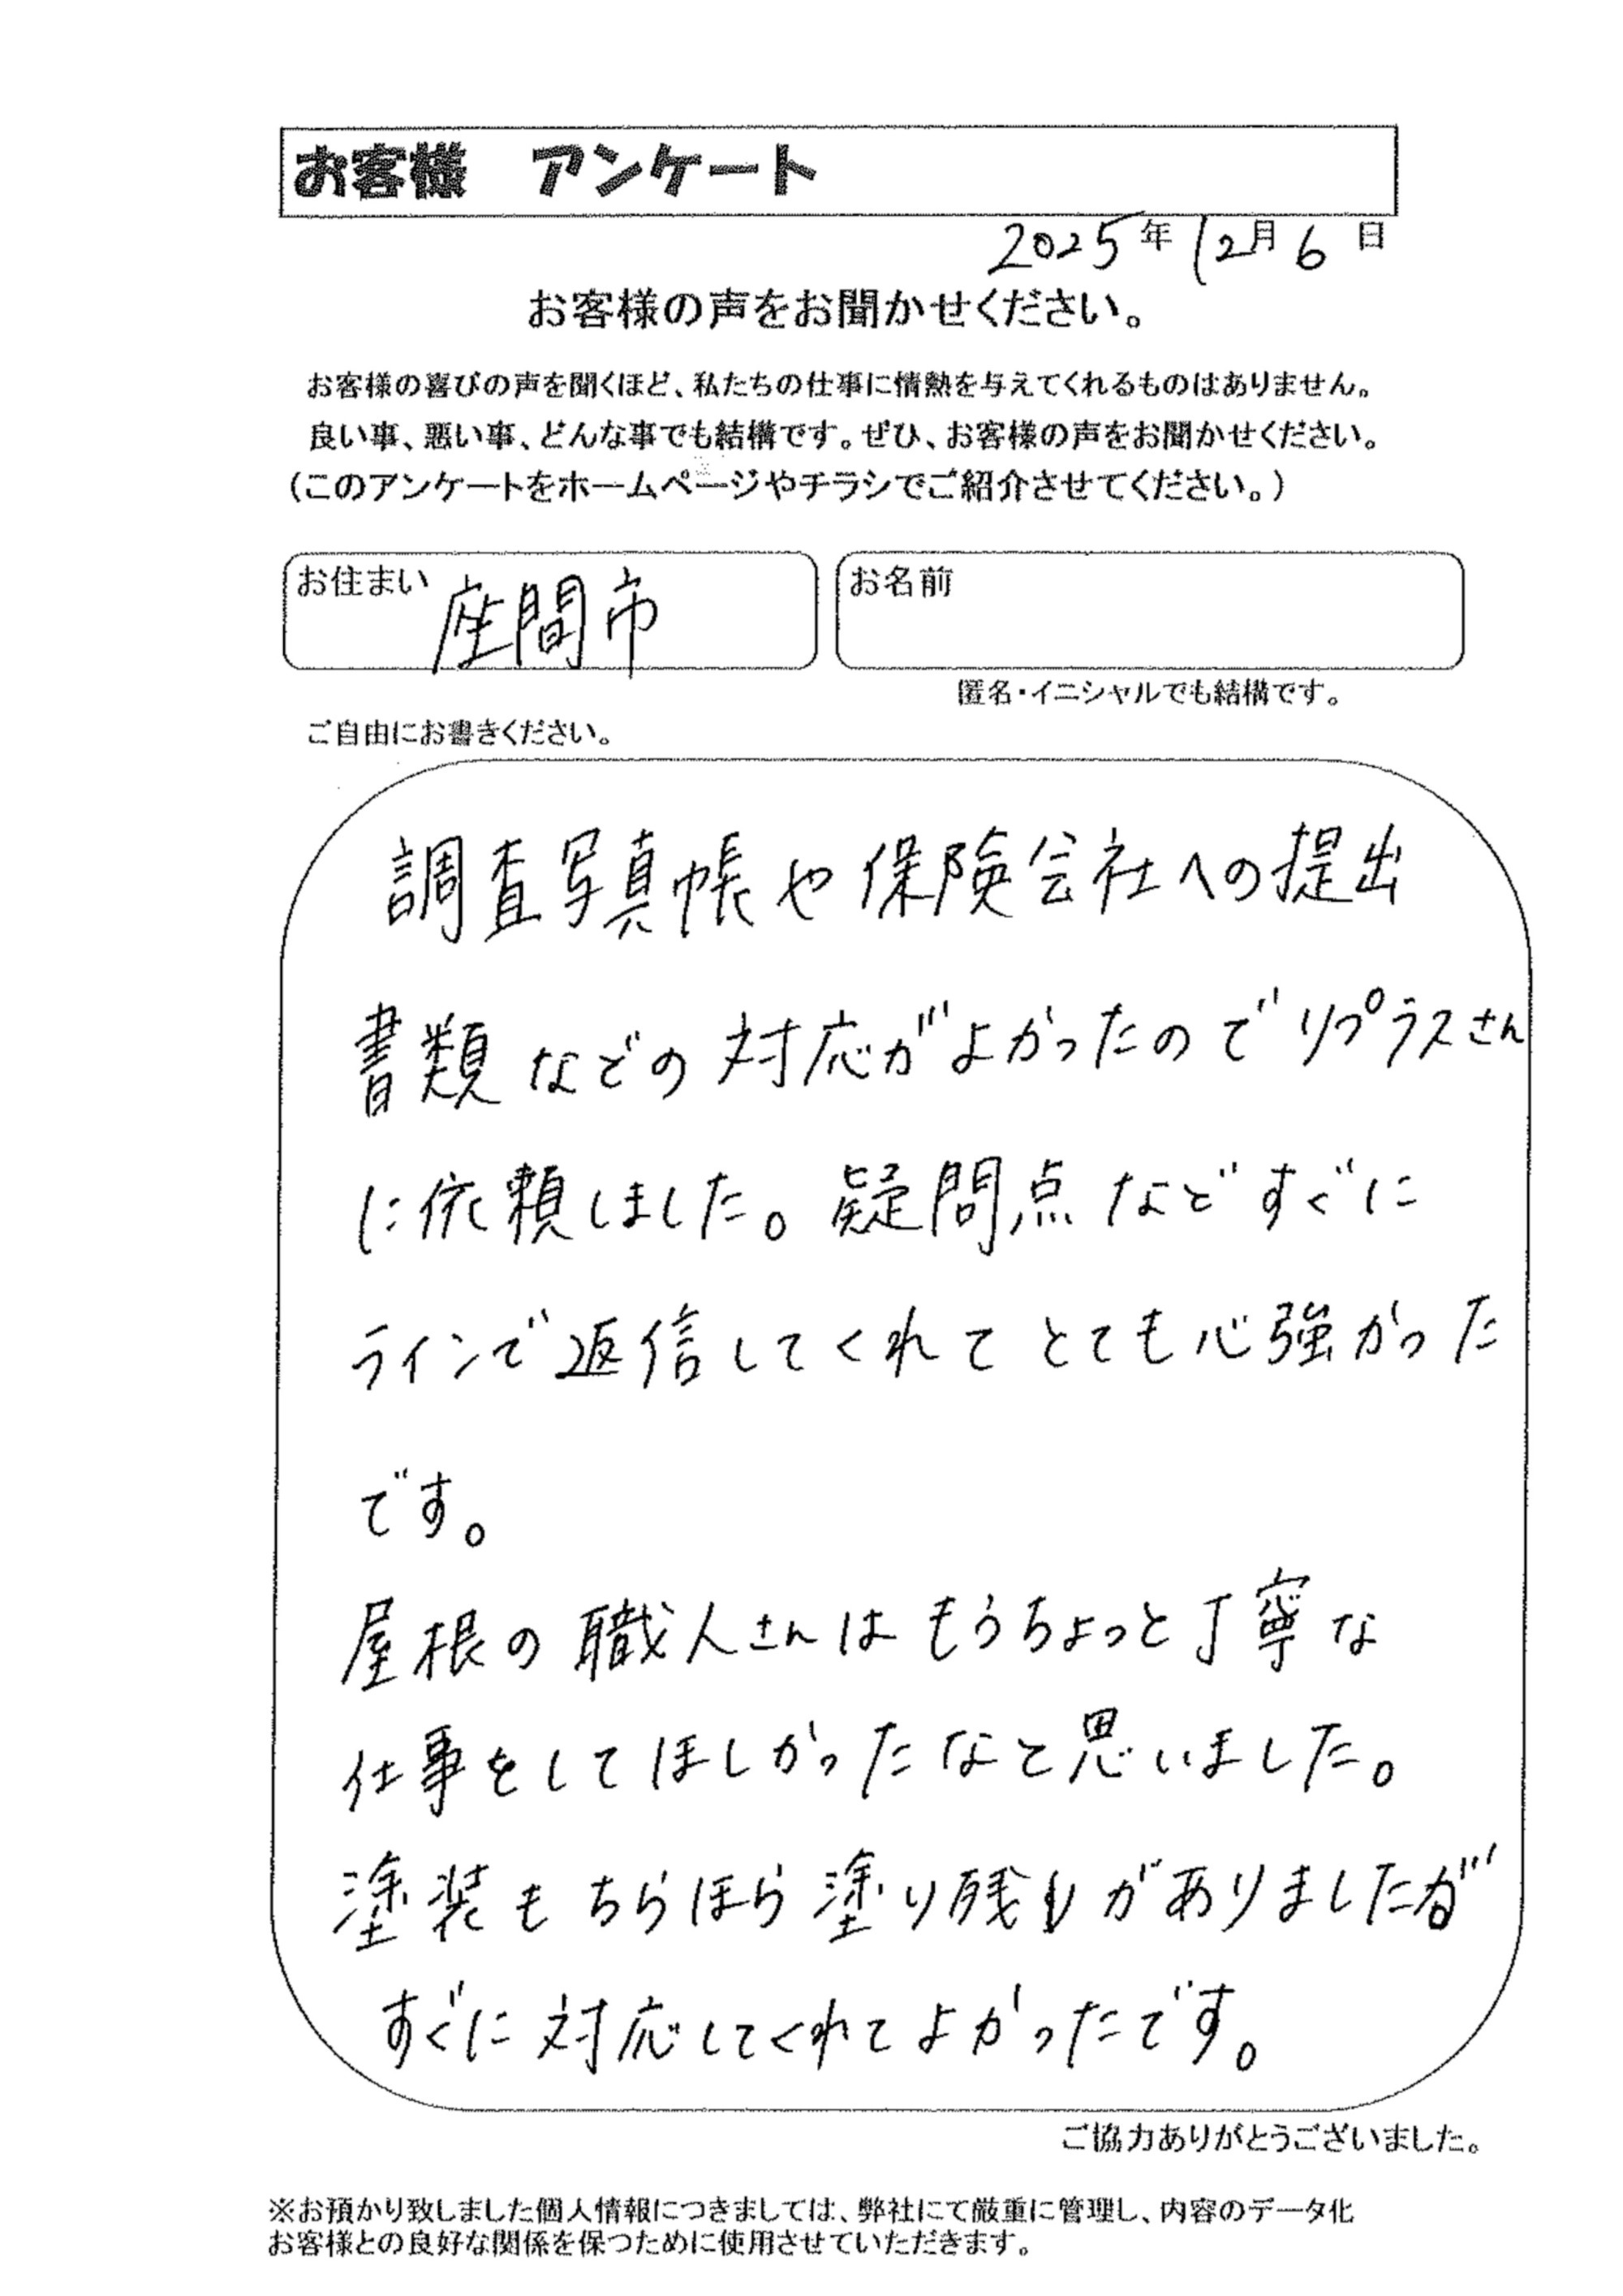 お客様　アンケート
2025年12月6日
お客様の声をお聞かせください。
お客様の喜びの声を聞くほど、私たちの仕事に情熱を与えてくれるものはありません。
良い事、悪い事、どんな事でも結構です。ぜひ、お客様の声をお聞かせください。
（このアンケートをホームページやチラシでご紹介させてください。）
お住まい 座間市
お名前
匿名・イニシャルでも結構です。
ご自由にお書きください。
調査写真帳や保険会社への提出
書類などの対応がよかったのでリプラスさん
に依頼しました。疑問点などすぐに
ラインで返信してくれてとても心強かった
です。
屋根の職人さんはもうちょっと丁寧な
仕事をしてほしかったなと思いました。
塗装もちらほら塗り残しがありましたが
すぐに対応してくれてよかったです。
ご協力ありがとうございました。
※お預かり致しました個人情報につきましては、弊社にて厳重に管理し、内容のデータ化
お客様との良好な関係を保つために使用させていただきます。